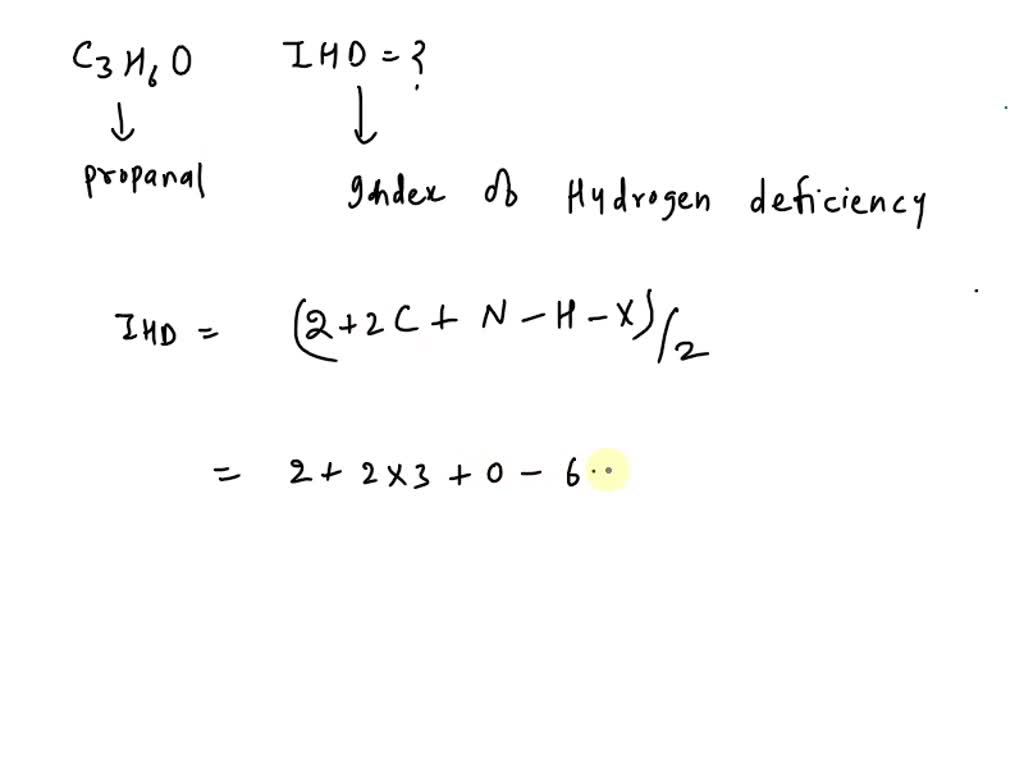 C₃H₆O IHD = ?
↓ ↓
propanal Index of Hydrogen deficiency
IHD = (2+2C+N-H-X)/2
= 2+2×3+0-6